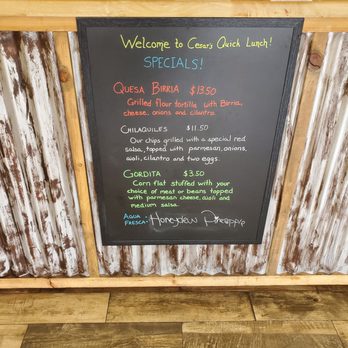 Welcome to Cesar's Quick Lunch!
SPECIALS!
QUESA BIRRIA $13.50
Grilled flour tortilla with Birria,
cheese, onions and cilantro.
CHILAQUILES $11.50
Our chips grilled with a special red
salsa, topped with parmesan, onions,
aioli, cilantro and two eggs.
GORDITA $3.50
Corn flat stuffed with your
choice of meat or beans topped
with parmesan cheese, aioli and
medium salsa.
AQUA
FRESCA: Honeydew Pineapple